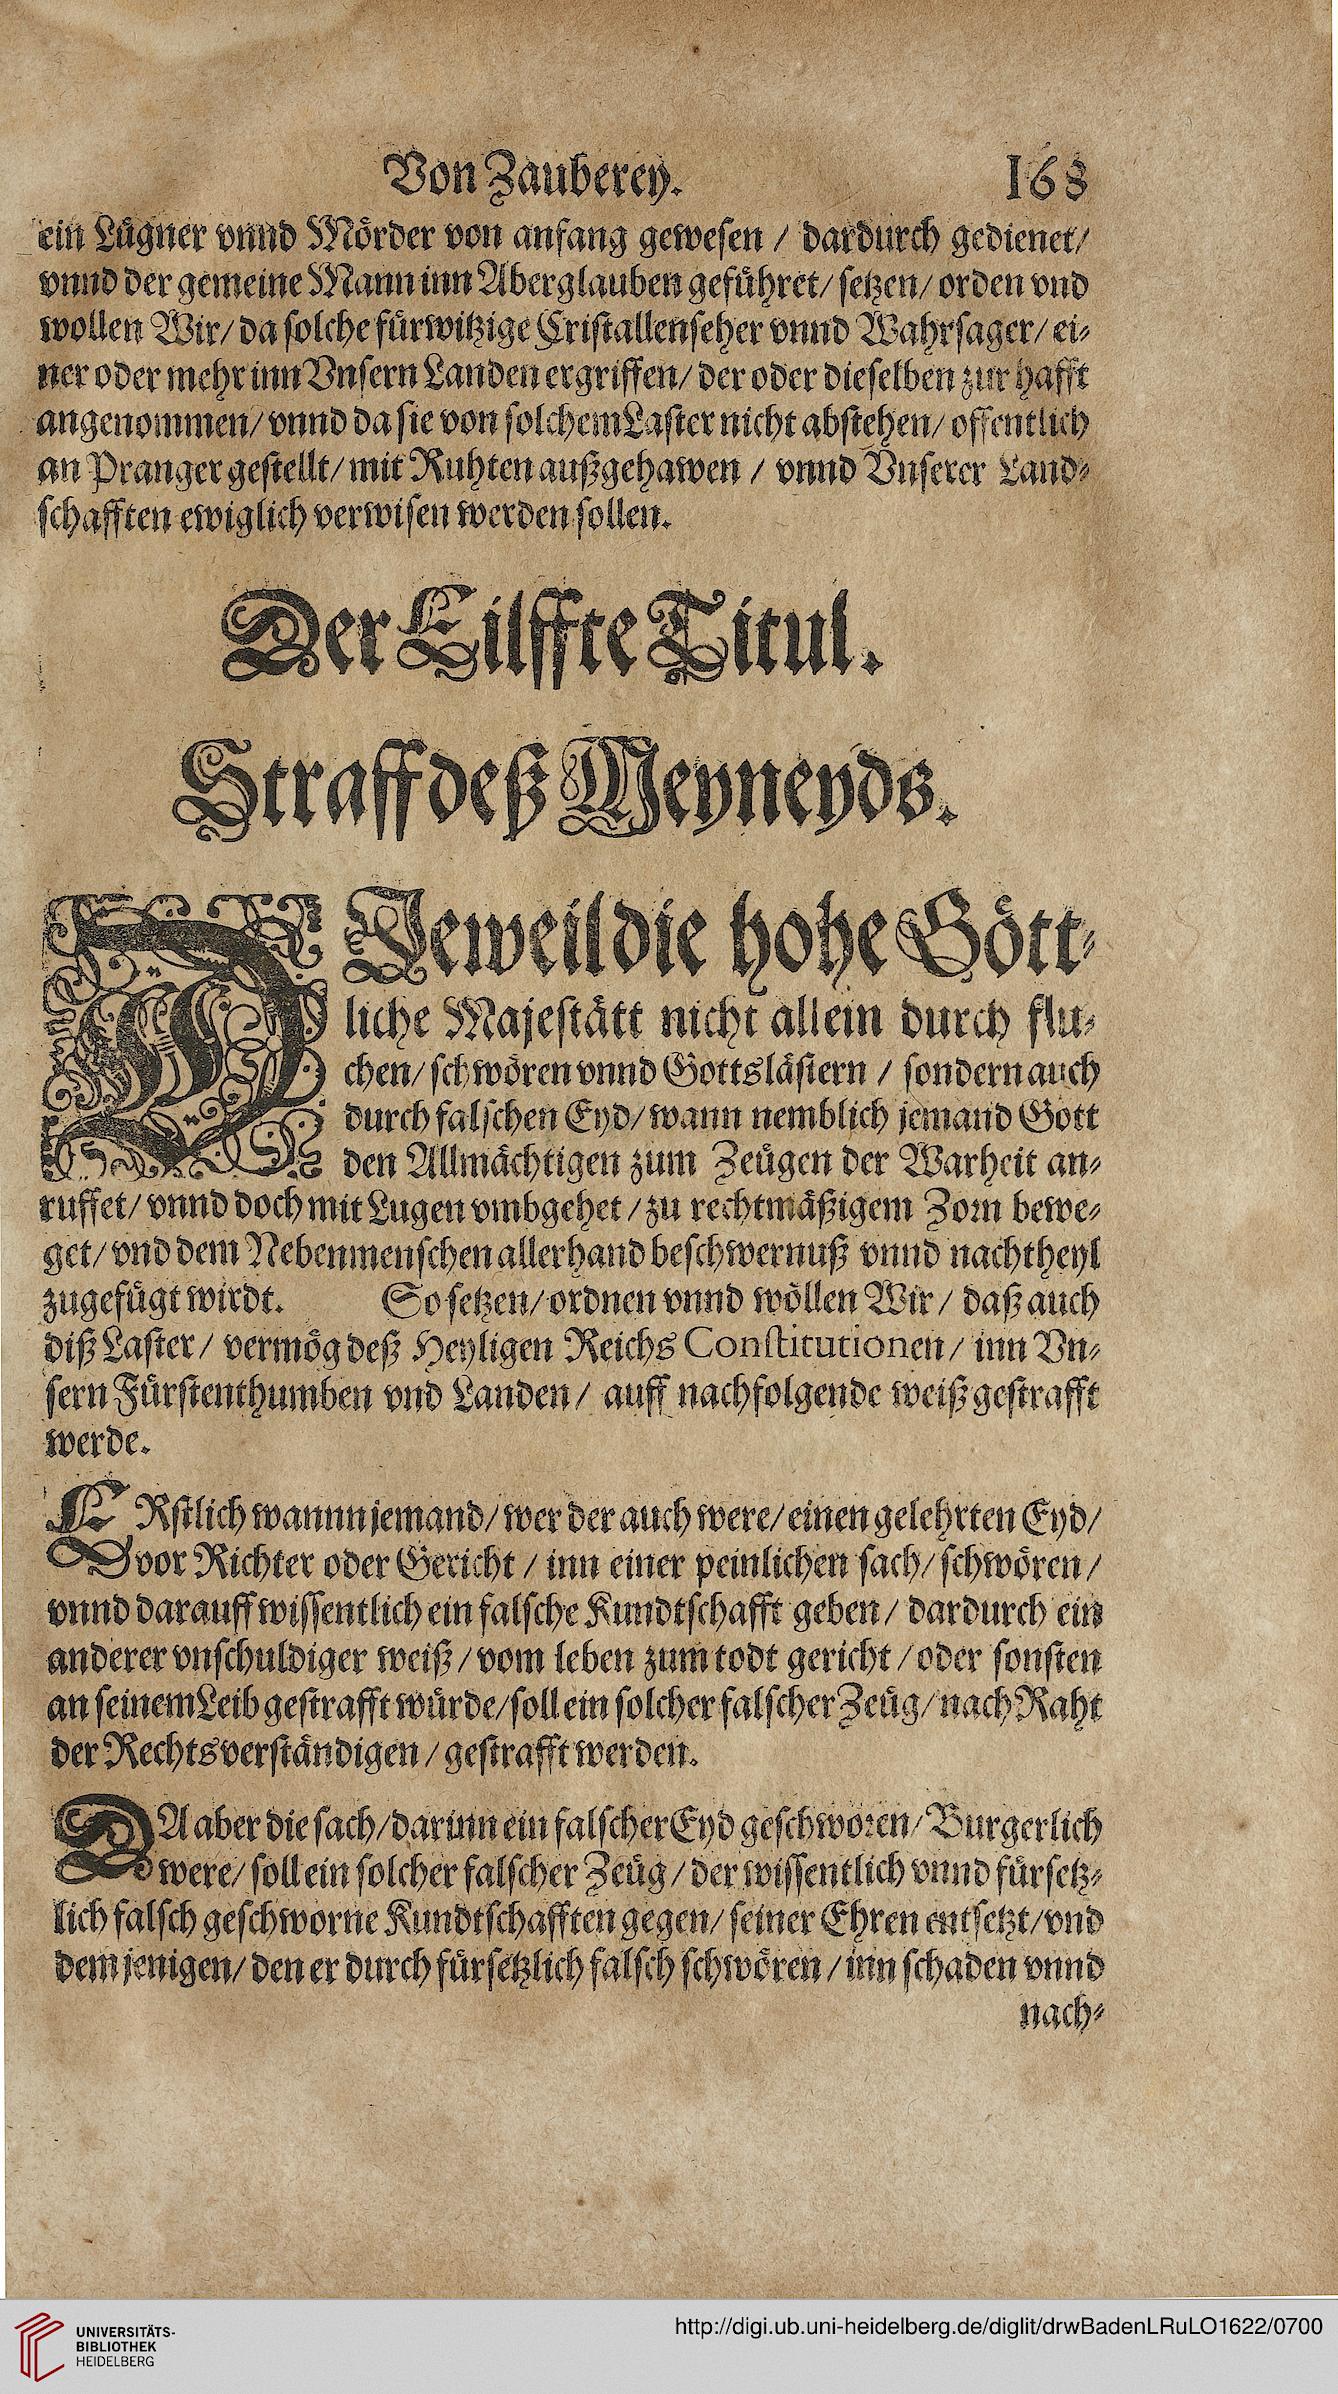 Von Zauberey. 168
ein Lügner vnnd Mörder von anfang gewesen / dardurch gedienet/
vnnd der gemeine Mann inn Aberglauben geführet/ setzen/ orden vnd
wollen Wir/ da solche fürwitzige Cristallenseher vnnd Wahrsager/ ei⸗
ner oder mehr inn Vnsern Landen ergriffen/ der oder dieselben zur hafft
angenommen/ vnnd da sie von solchem Laster nicht abstehen/ offentlich
an Pranger gestellt/ mit Ruhten außgehawen / vnnd Vnserer Land⸗
schafften ewiglich verwisen werden sollen.
Der Eilffte Titul.
Straff deß Meyneyds.
DIeweil die hohe Gött⸗
liche Majestätt nicht allein durch flu⸗
chen/ schwören vnnd Gottslästern / sondern auch
durch falschen Eyd/ wann nemblich jemand Gott
den Allmächtigen zum Zeügen der Warheit an⸗
ruffet/ vnnd doch mit Lugen vmbgehet / zu rechtmäßigem Zorn bewe⸗
get/ vnd dem Nebenmenschen allerhand beschwernuß vnnd nachtheyl
zugefügt wirdt. So setzen/ ordnen vnnd wöllen Wir / daß auch
diß Laster / vermög deß Heyligen Reichs Constitutionen / inn Vn⸗
sern Fürstenthumben vnd Landen / auff nachfolgende weiß gestrafft
werde.
ERstlich wannn jemand/ wer der auch were/ einen gelehrten Eyd/
vor Richter oder Gericht / inn einer peinlichen sach/ schwören /
vnnd darauff wissentlich ein falsche Kundtschafft geben / dardurch ein
anderer vnschuldiger weiß / vom leben zum todt gericht / oder sonsten
an seinem Leib gestrafft würde/ soll ein solcher falscher Zeüg/ nach Raht
der Rechtsverständigen / gestrafft werden.
DA aber die sach/ darinn ein falscher Eyd geschworen/ Burgerlich
were/ soll ein solcher falscher Zeüg / der wissentlich vnnd fürsetz⸗
lich falsch geschworne Kundtschafften gegen/ seiner Ehren entsetzt/ vnd
dem jenigen/ den er durch fürsetzlich falsch schwören / inn schaden vnnd
nach⸗
UNIVERSITÄTS-
BIBLIOTHEK
HEIDELBERG
http://digi.ub.uni-heidelberg.de/diglit/drwBadenLRuLO1622/0700